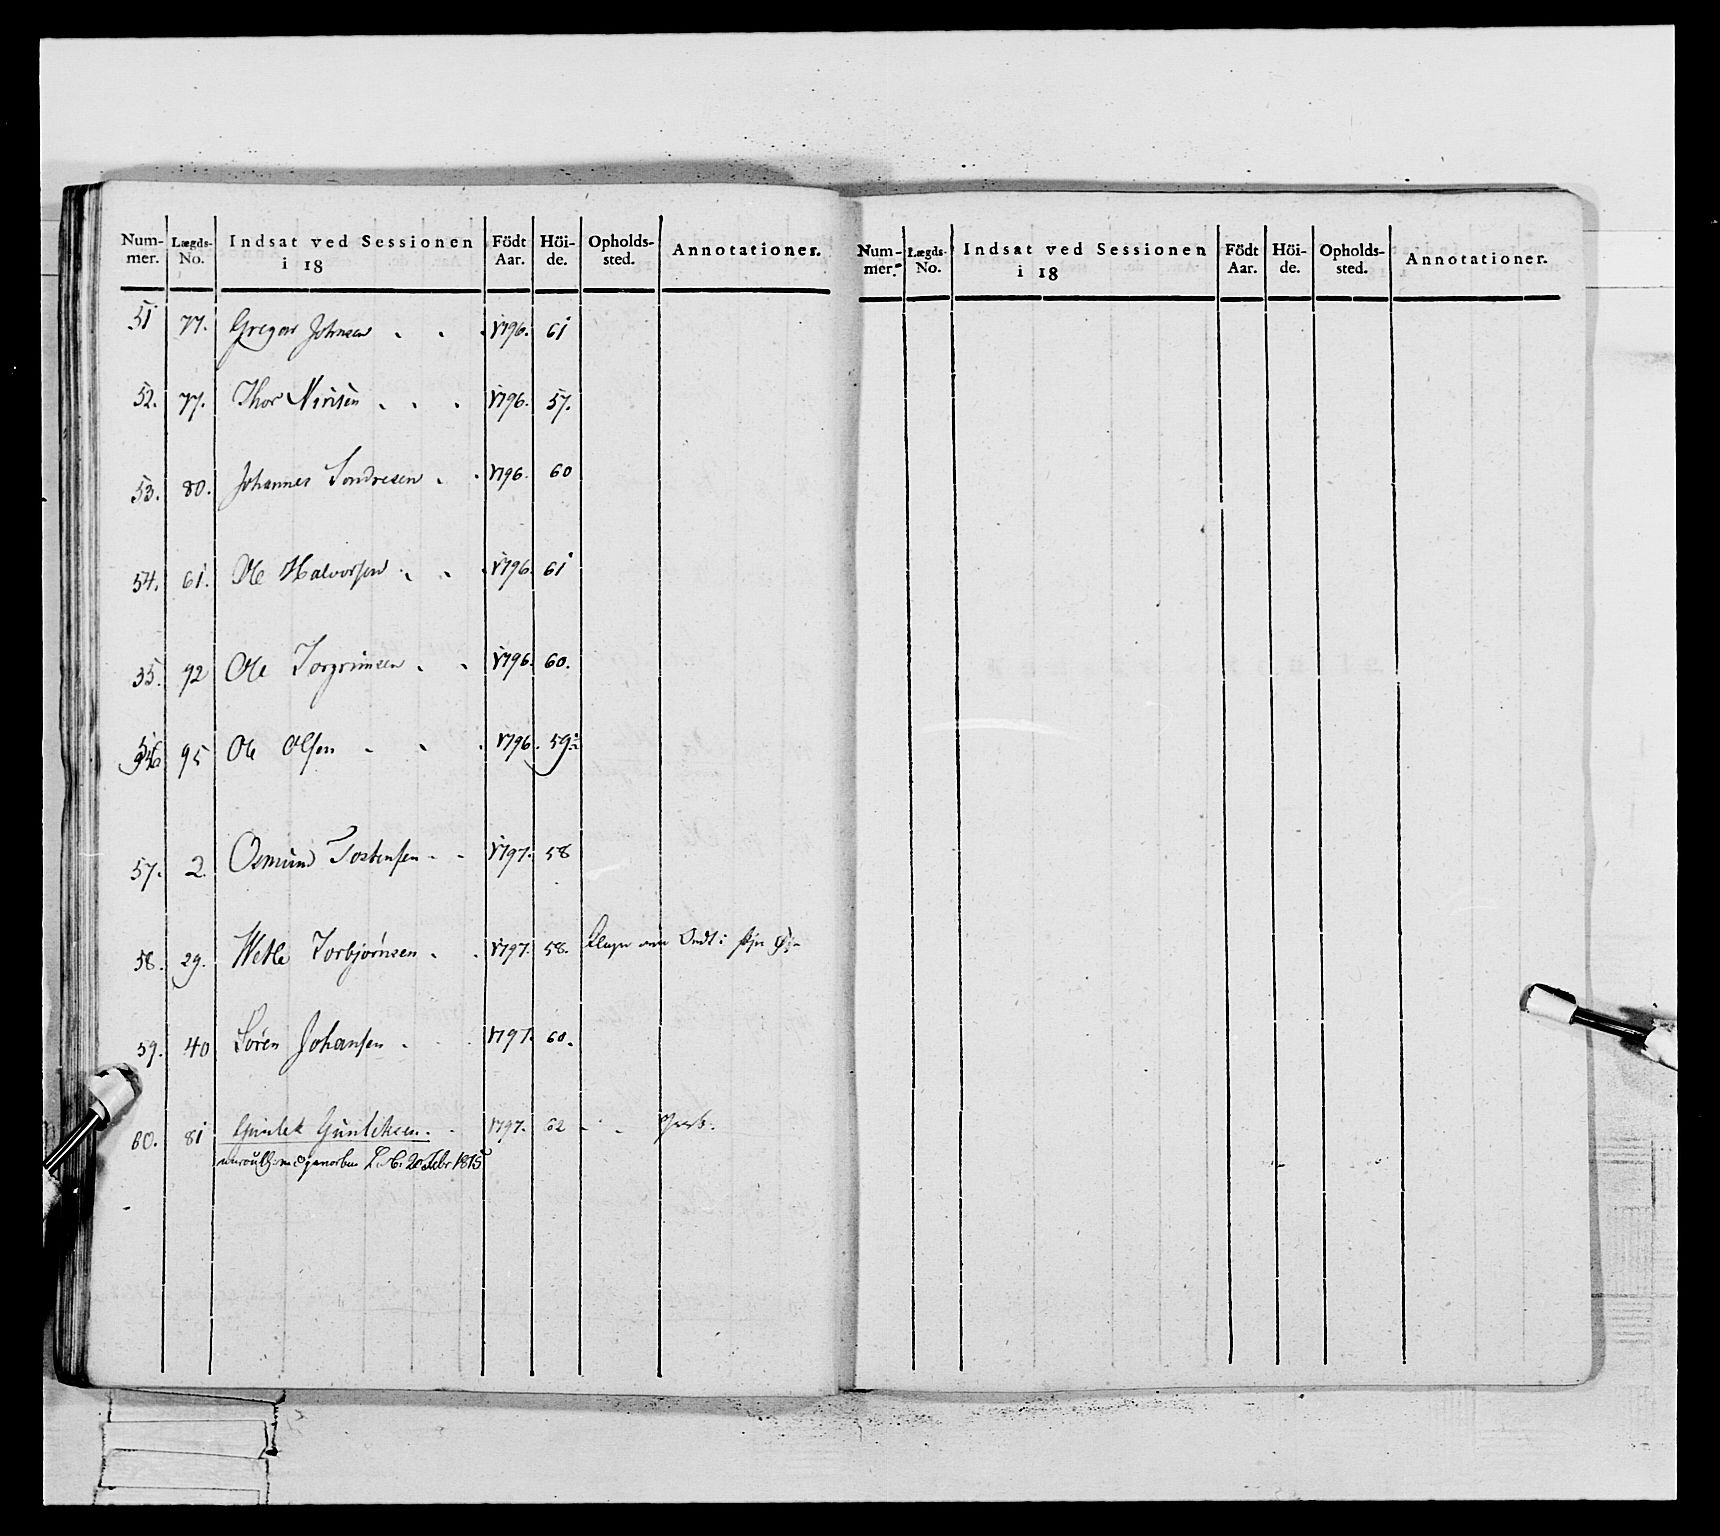 Num-mer. Lægds-No. Indsat ved Sessionen i 18 Födt Aar. Höi-de. Opholds-sted. Annotationer.
51 77. Gregar Johnsen 1796. 61
52. 77. Thor 1796. 57.
53. 80. Johannes Sondresen 1796. 60
54. 61. Ole Halvorsen 1796. 61
55. 92 Ole Torgrimsen 1796. 60.
56 95 Ole Olsen 1796. 59½
57. 2 Osmund Tostensen 1797. 58
58. 29. Wetle Torbjørnsen 1797. 58.
59. 40 Søren Johansen 1797. 60.
60. 81 Gunlek Gunleksen 1797. 62
20 Febr 1815
Num-mer. Lægds-No. Indsat ved Sessionen i 18 Födt Aar. Höi-de. Opholds-sted. Annotationer.